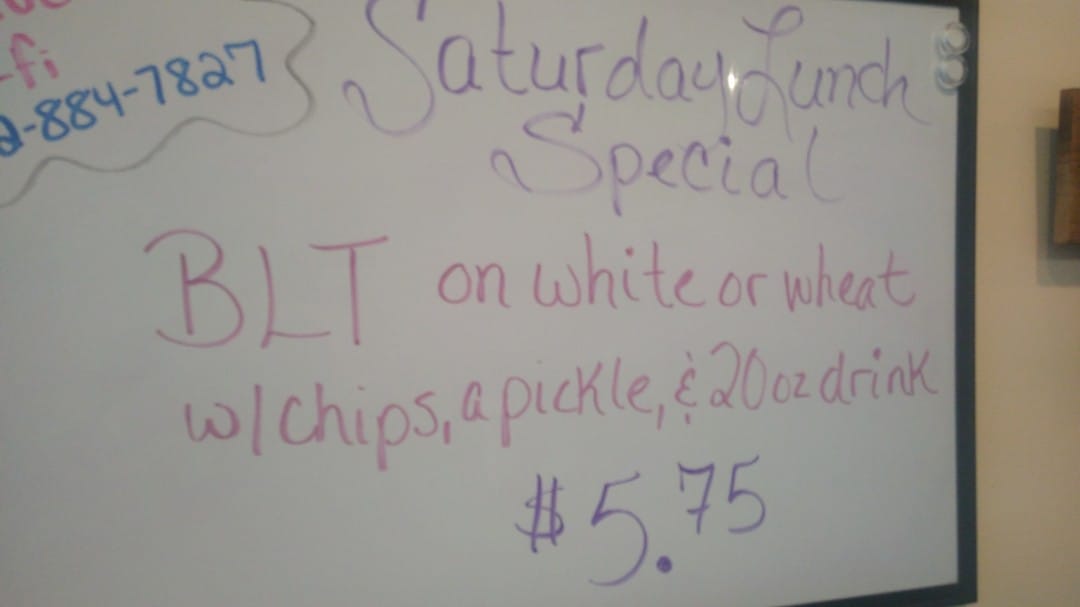 -fi
2-884-7827
Saturday Lunch
Special
BLT on white or wheat
w/chips, a pickle, & 20oz drink
$5.75